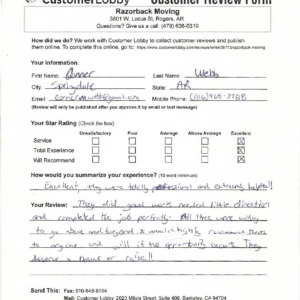 CustomerLobby Customer Review Form
Razorback Moving
3801 W. Locust St, Rogers, AR
Questions? Give us a call: (479) 636-0310
How did we do? We work with Customer Lobby to collect customer reviews and publish
them online. To complete this online, go to:
Your Information:
First Name: Conner Last Name: Webb
City: Springdale State: AR
Email: Mobile Phone:
(Review will only be published after you approve it by email or text message)
Your Star Rating (Check the box):
Unsatisfactory Poor Average Above Average Excellent
Service
Total Experience
Will Recommend
How would you summarize your experience? (10 word minimum)
Excellent they were totally professional and extremely helpful!
Your Review: They did good work needed little direction
and completed the job perfectly. All three were willing
to go above and beyond. I would highly recommend them
to anyone and will if the opportunity occurs. They
deserve a bonus or raise!!
Send This: Fax: 510-848-8164
Mail: Customer Lobby 2020 Milvia Street, Suite 400, Berkeley, CA 94704